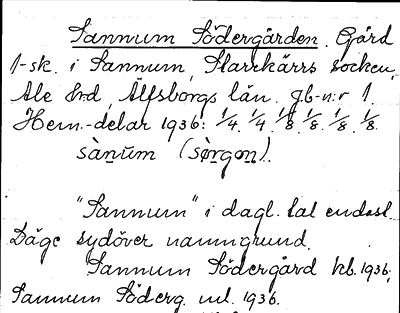 Sannum Södergården. Gård
1-sk. i Sannum, Starrkärrs socken,
Ale hrd, Älfsborgs län. gb-n:r 1.
Hem.-delar 1936: 1/4. 1/4. 1/8. 1/8. 1/8. 1/8.
sànum (sörgoṇ).
"Sannum" i dagl. tal endast.
Läge sydöver namngrund.
Sannum Södergård kb. 1936,
Sannum Söderg. ml. 1936.